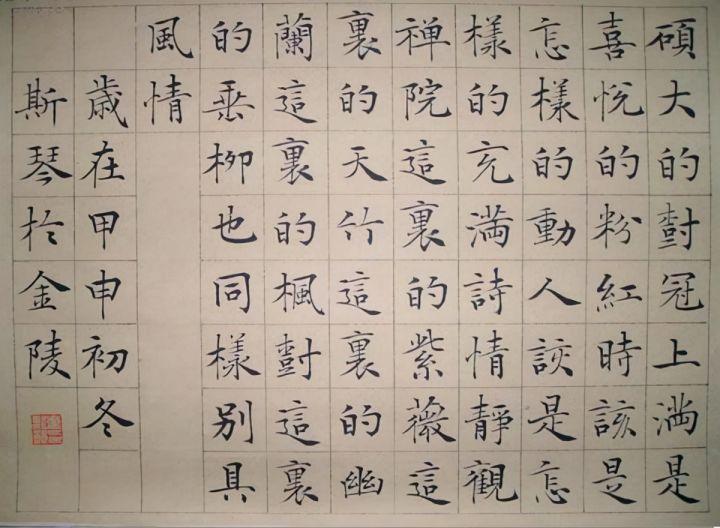 碩大的樹冠上滿是
喜悅的粉紅時該是
怎樣的動人該是怎
樣的充滿詩情靜觀
禅院這裏的紫薇這
裏的天竹這裏的幽
蘭這裏的楓樹這裏
的垂柳也同樣别具
風情
歲在甲申初冬
斯琴於金陵